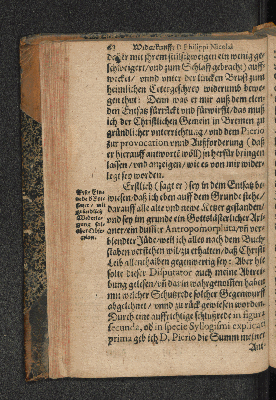 62 Widerkunfft D. Philippi Nicolai
daß er mit ihrem stillschweigen ein wenig ge-
schweigert / vnd zum Schlaff gebracht) auff-
wecket / vnnd vnter der lincken Brust zum
heimlichen Cetergeschrey widerumb bewe-
gen thut: Denn was er mir auß dem elen-
den Entsatz fürrückt vnd fürwirfft / das muß
ich der Christlichen Gemein in Bremen zu
gründlicher vnterrichtung / vnd dem Pierio
zur provocation vnnd Aufforderung (daß
er hierauff antworte wöll) herfür bringen
lassen / vnd anzeigen / wie es von mir wider-
legt sey worden.
Erstlich (sagt er) sey in dem Entsatz be-
wiesen / daß ich eben auff dem Grunde stehe /
darauff alle alte vnd newe Ketzer gestanden /
vnd sey im grunde ein Gottslästerlicher Aria-
ner / ein dussler Antropomorphita / vñ ver-
blendter Jüde / weil ich alles nach dem Buch-
staben verstehen wil / zu erhalten / daß Christi
Leib allenthalben gegenwertig sey: Aber hie
solte dieser Disputator auch meine Abtrei-
bung gelesen / vñ da in wahrgenommen haben
mit welcher Schutzrede solcher Gegenwurff
abgelehnet / vnnd zu rück gewiesen worden.
Durch eine auffrichtige schlußrede in figura
secunda, od in specie Syllogismi explicati
prima geb ich D. Pierio die Summ meiner
Ant-